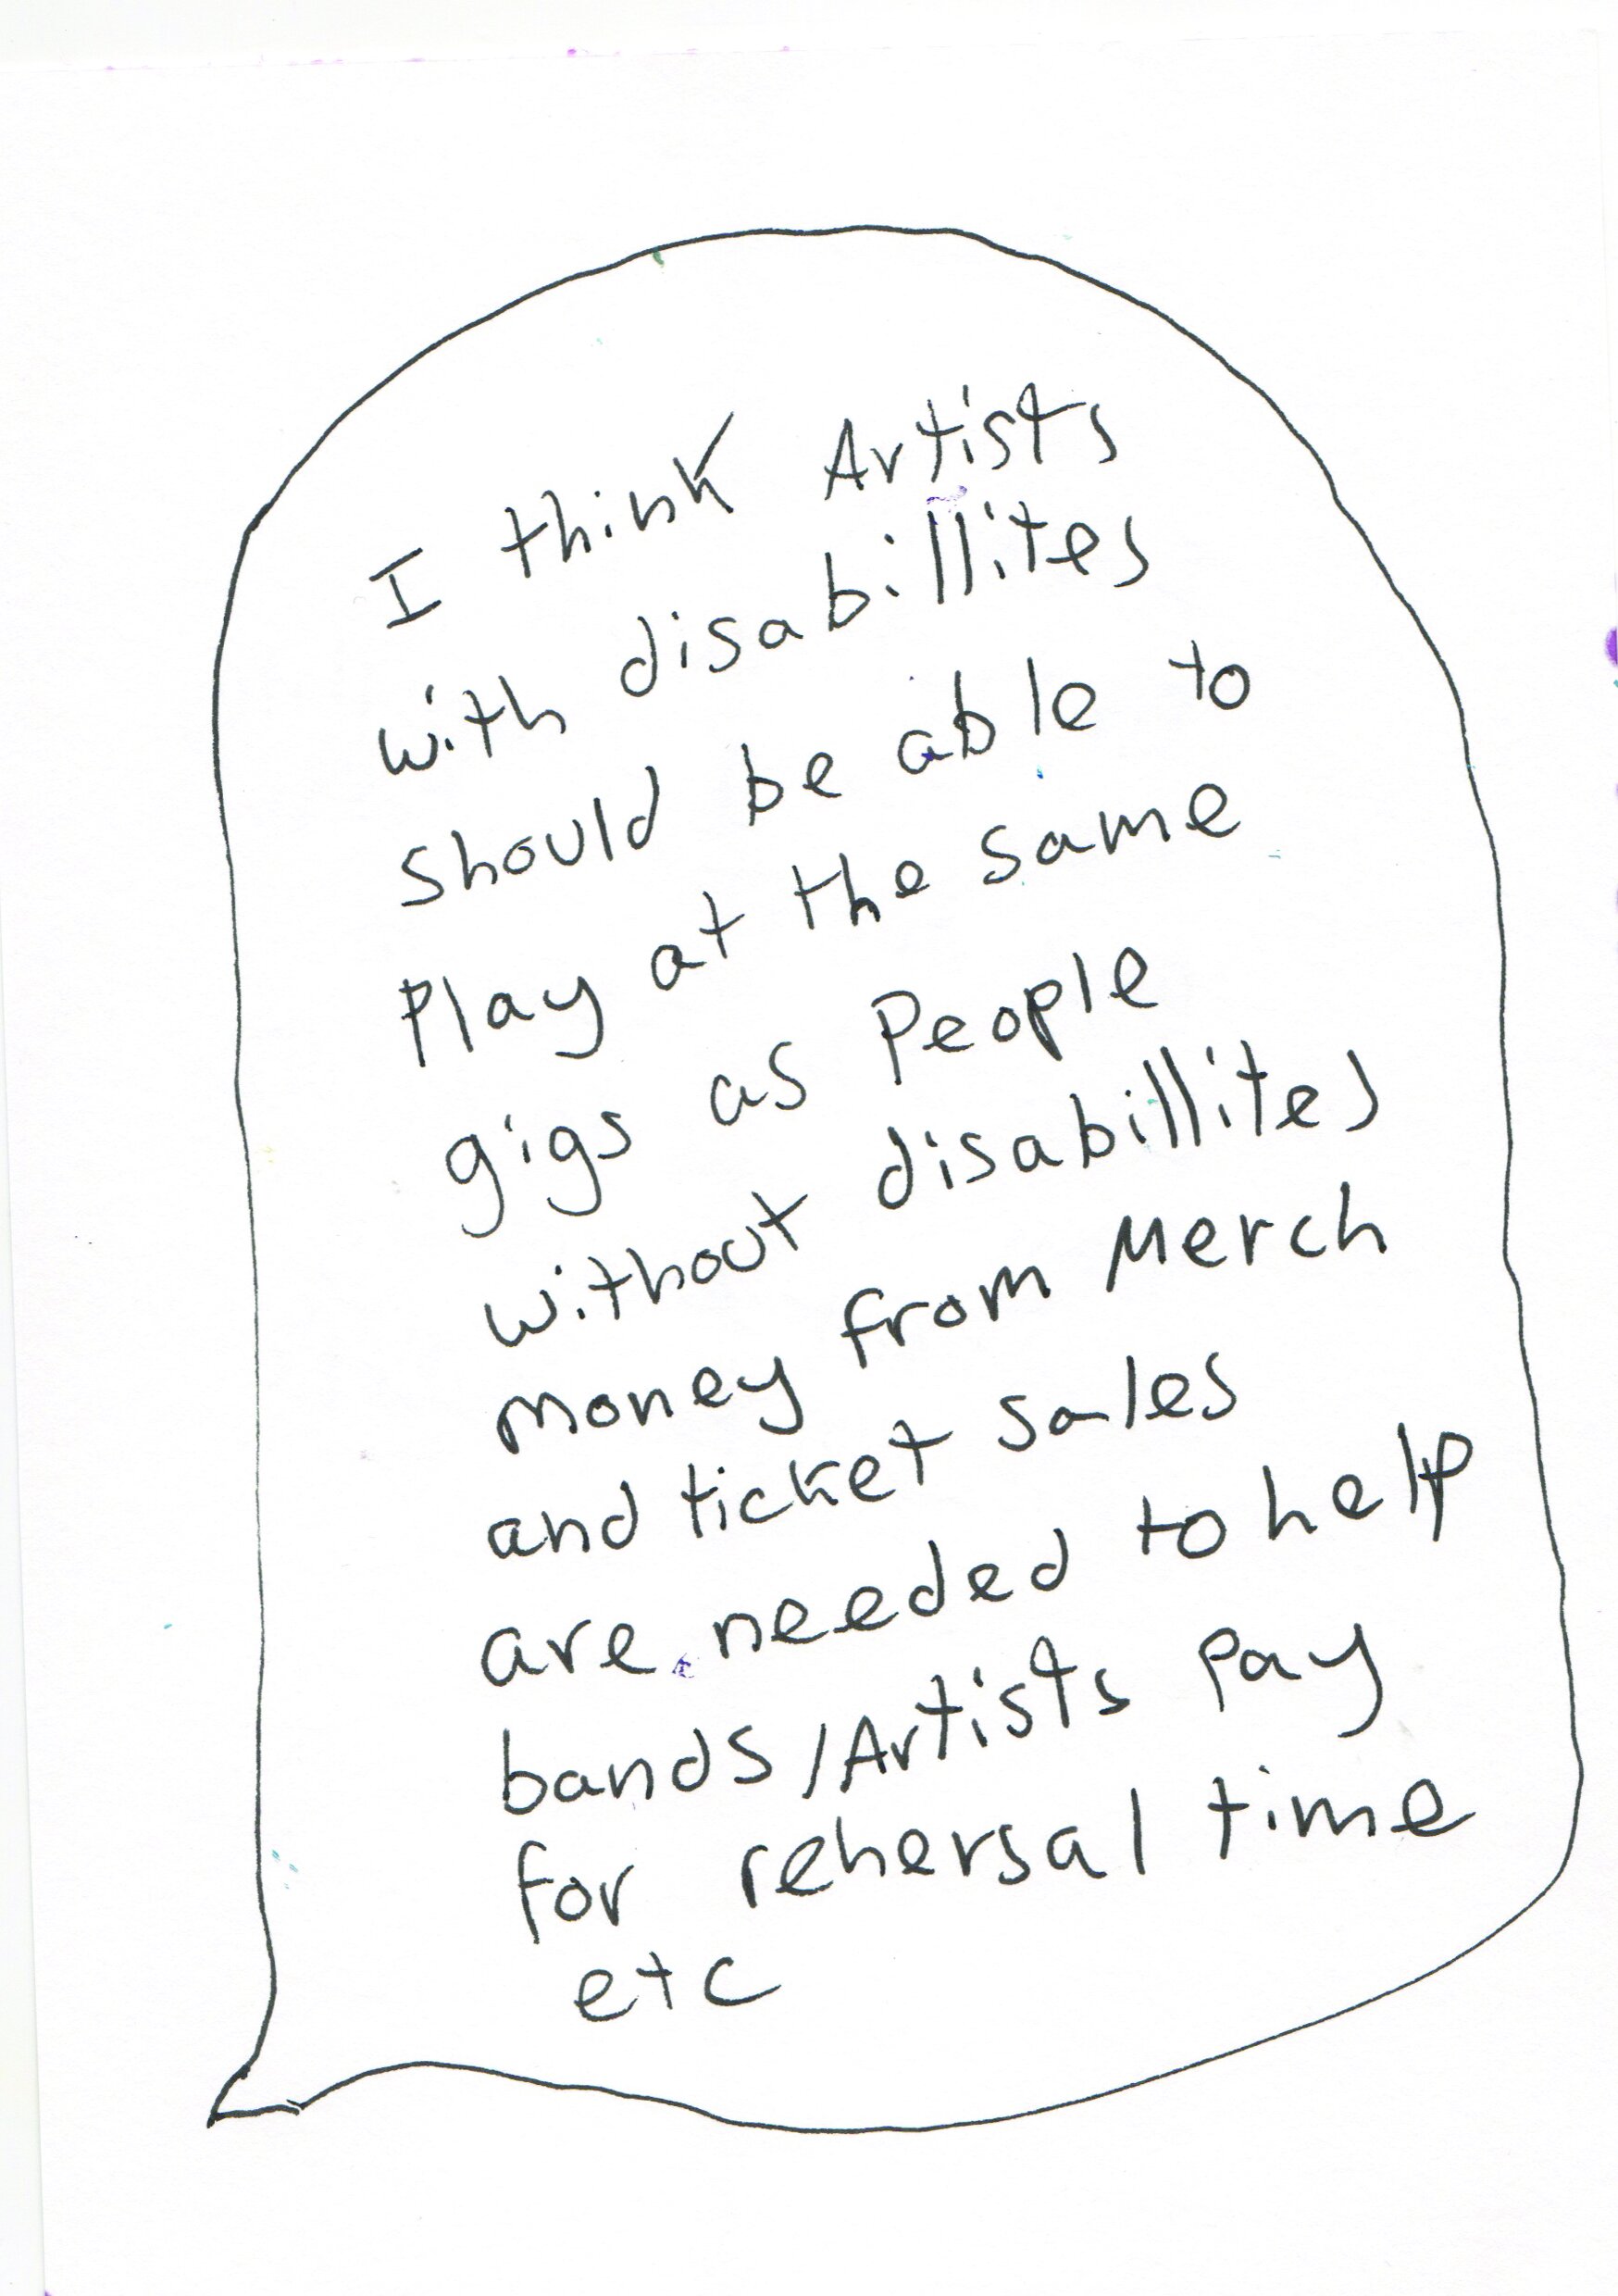 I think Artists
with disabillites
should be able to
Play at the same
gigs as People
without disabillites
money from Merch
and ticket sales
are needed to help
bands/Artists pay
for rehersal time
etc